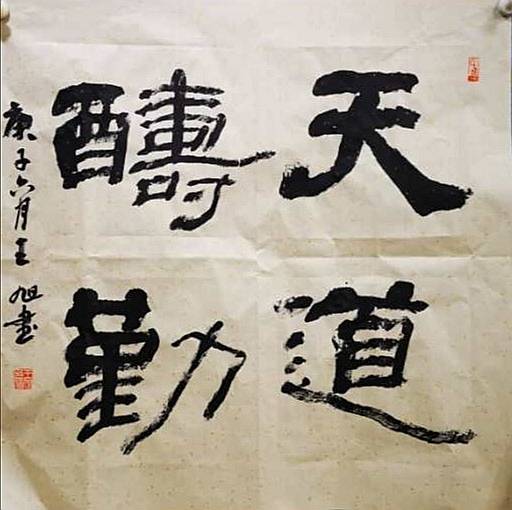 天道
醻勤
庚子六月王旭書